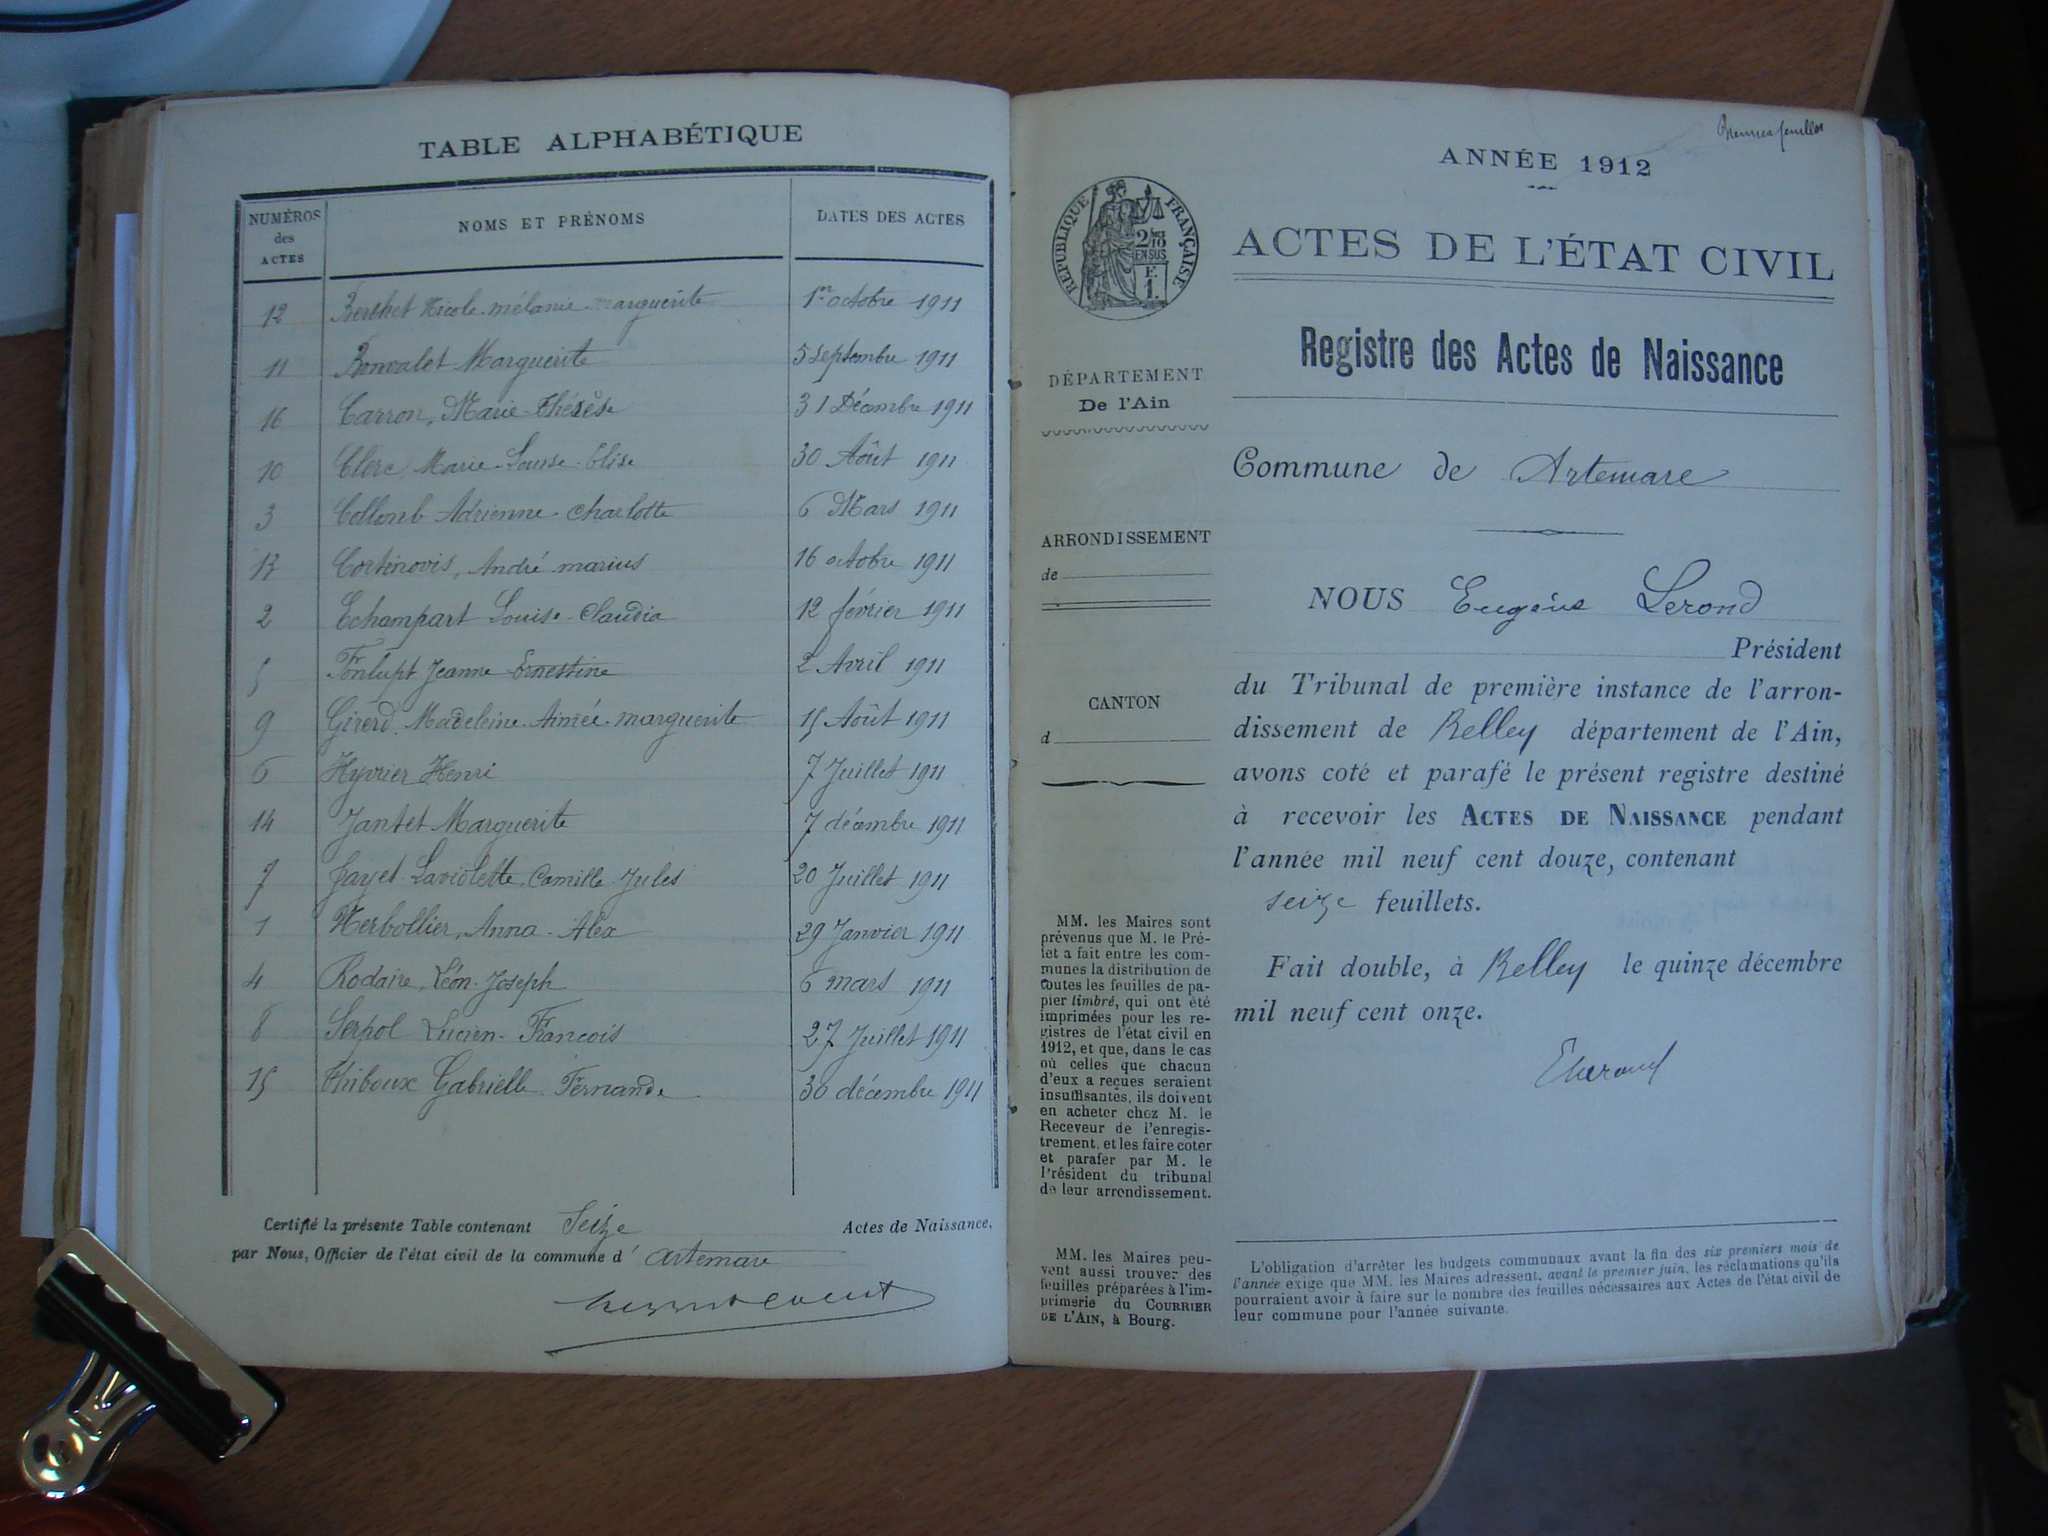 TABLE ALPHABÉTIQUE
NUMÉROS des ACTES NOMS ET PRÉNOMS DATES DES ACTES
12 Berthet Nicole mélanie marguerite 1er octobre 1911
11 Bonvalet Marguerite 5 septembre 1911
16 Carron, Marie-Thérèse 31 Décembre 1911
10 Clerc Marie-Louise-Elise 30 Août 1911
3 Collomb Adrienne-Charlotte 6 Mars 1911
13 Cortinovis, André-marius 16 octobre 1911
2 Echampart Louise-Claudia 12 février 1911
5 Fonlupt Jeanne Ernestine 2 Avril 1911
9 Girerd Madeleine-Aimée-marguerite 15 Août 1911
6 Hyvrier Henri 7 Juillet 1911
14 Jantet Marguerite 7 décembre 1911
7 Jayet-Laviolette, Camille-Jules 20 Juillet 1911
1 Herbollier, Anna-Alex 29 Janvier 1911
4 Rodaire, Léon-Joseph 6 mars 1911
8 Serpol Lucien-François 27 Juillet 1911
15 Thiboux Gabrielle-Fernande 30 décembre 1911
Certifié la présente Table contenant Seize Actes de Naissance,
par Nous, Officier de l'état civil de la commune d' Artemare
REPUBLIQUE FRANÇAISE
2/10 EN SUS
F. 1.
DÉPARTEMENT
De l'Ain
ARRONDISSEMENT
de
CANTON
d
MM. les Maires sont
prévenus que M. le Pré-
fet a fait entre les com-
munes la distribution de
toutes les feuilles de pa-
pier timbré, qui ont été
imprimées pour les re-
gistres de l'état civil en
1912, et que, dans le cas
où celles que chacun
d'eux a reçues seraient
insuffisantes, ils doivent
en acheter chez M. le
Receveur de l'enregis-
trement, et les faire coter
et parafer par M. le
Président du tribunal
de leur arrondissement.
MM. les Maires peu-
vent aussi trouver des
feuilles préparées à l'im-
primerie du COURRIER
DE L'AIN, à Bourg.
ANNÉE 1912
ACTES DE L'ÉTAT CIVIL
Registre des Actes de Naissance
Commune de Artemare
NOUS Eugène Lerond
Président
du Tribunal de première instance de l'arron-
dissement de Belley département de l'Ain,
avons coté et parafé le présent registre destiné
à recevoir les ACTES DE NAISSANCE pendant
l'année mil neuf cent douze, contenant
seize feuillets.
Fait double, à Belley le quinze décembre
mil neuf cent onze.
L'obligation d'arrêter les budgets communaux avant la fin des six premiers mois de
l'année exige que MM. les Maires adressent, avant le premier juin, les réclamations qu'ils
pourraient avoir à faire sur le nombre des feuilles nécessaires aux Actes de l'état civil de
leur commune pour l'année suivante.